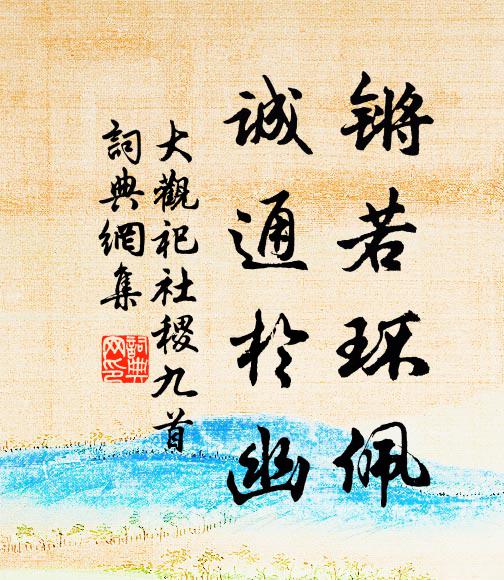 锵若环佩
誠通於幽
大觀祀社稷九首
詞典網集
詞典
网印